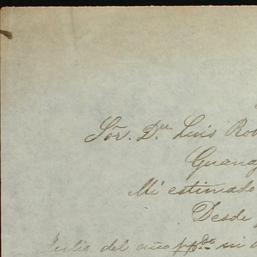 Sor. Dn. Luis Rob
Guang
Mi estimado
Desde
Julio del año ppdo. mi